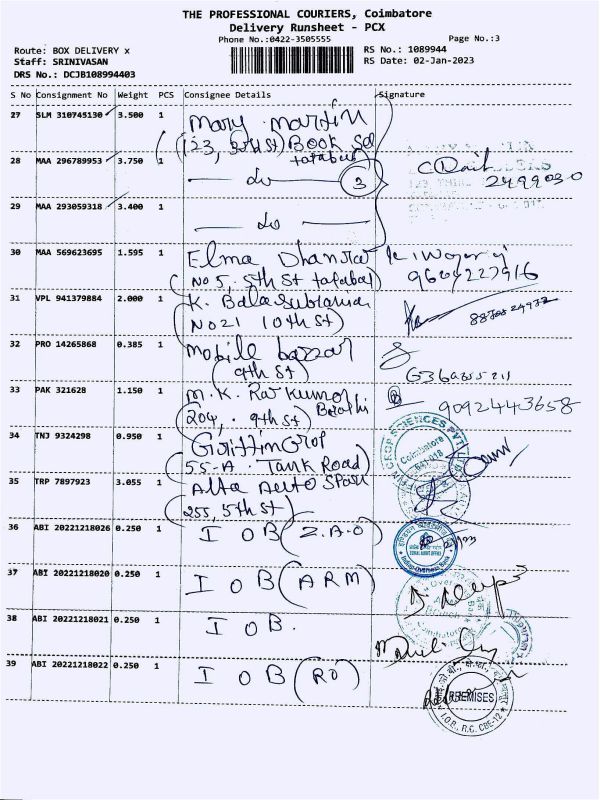 THE PROFESSIONAL COURIERS, Coimbatore
Delivery Runsheet - PCX
Phone No.:0422-3505555
Page No.:3
Route: BOX DELIVERY x
RS No.: 1089944
Staff: SRINIVASAN
RS Date: 02-Jan-2023
DRS No.: DCJB108994403
S No Consignment No Weight PCS Consignee Details Signature
27 SLM 310745130 3.500 1 Mary Martin
(123, 3rd St) Book Sel
tatabad
28 MAA 296789953 3.750 1 — do — 3
2499030
29 MAA 293059318 3.400 1 — do —
30 MAA 569623695 1.595 1 Elma Dhansra
(No 5, 5th St tatabad)
9604227916
31 VPL 941379884 2.000 1 K. Balasubramani
No 21 10th St)
32 PRO 14265868 0.385 1 Mobile bazzar
(9th St)
33 PAK 321628 1.150 1 M. K. Raj kumar
(204, 9th St)
09092443658
34 TNJ 9324298 0.950 1
55-A. Tank Road)
CROP SCIENCES PVT
Coimbatore
641 018
35 TRP 7897923 3.055 1 Alfa Auto Spares
255, 5th St)
36 ABI 20221218026 0.250 1 I O B (Z.A.O)
37 ABI 20221218020 0.250 1 I O B (ARM)
38 ABI 20221218021 0.250 1 I O B.
39 ABI 20221218022 0.250 1 I O B (RO)
PREMISES
I.O.B., R.O. CBE-12